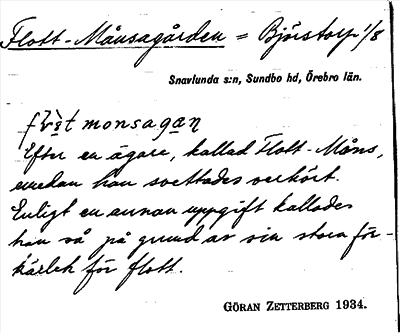 Flott-Månsagården = Björstorp 1/8
Snavlunda s:n, Sundbo hd, Örebro län.
monsagan
Efter en ägare, kallad Flott-Måns,
medan han svettades oerhört.
Enligt en annan uppgift kallades
han så på grund av sin stora för-
kärlek för flott.
GÖRAN ZETTERBERG 1934.